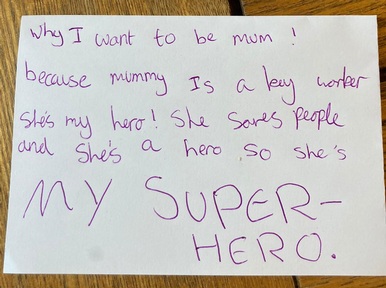 Why I want to be mum !
because mummy Is a key worker
She's my hero! She saves people
and she's a hero so she's
MY SUPER-
HERO.